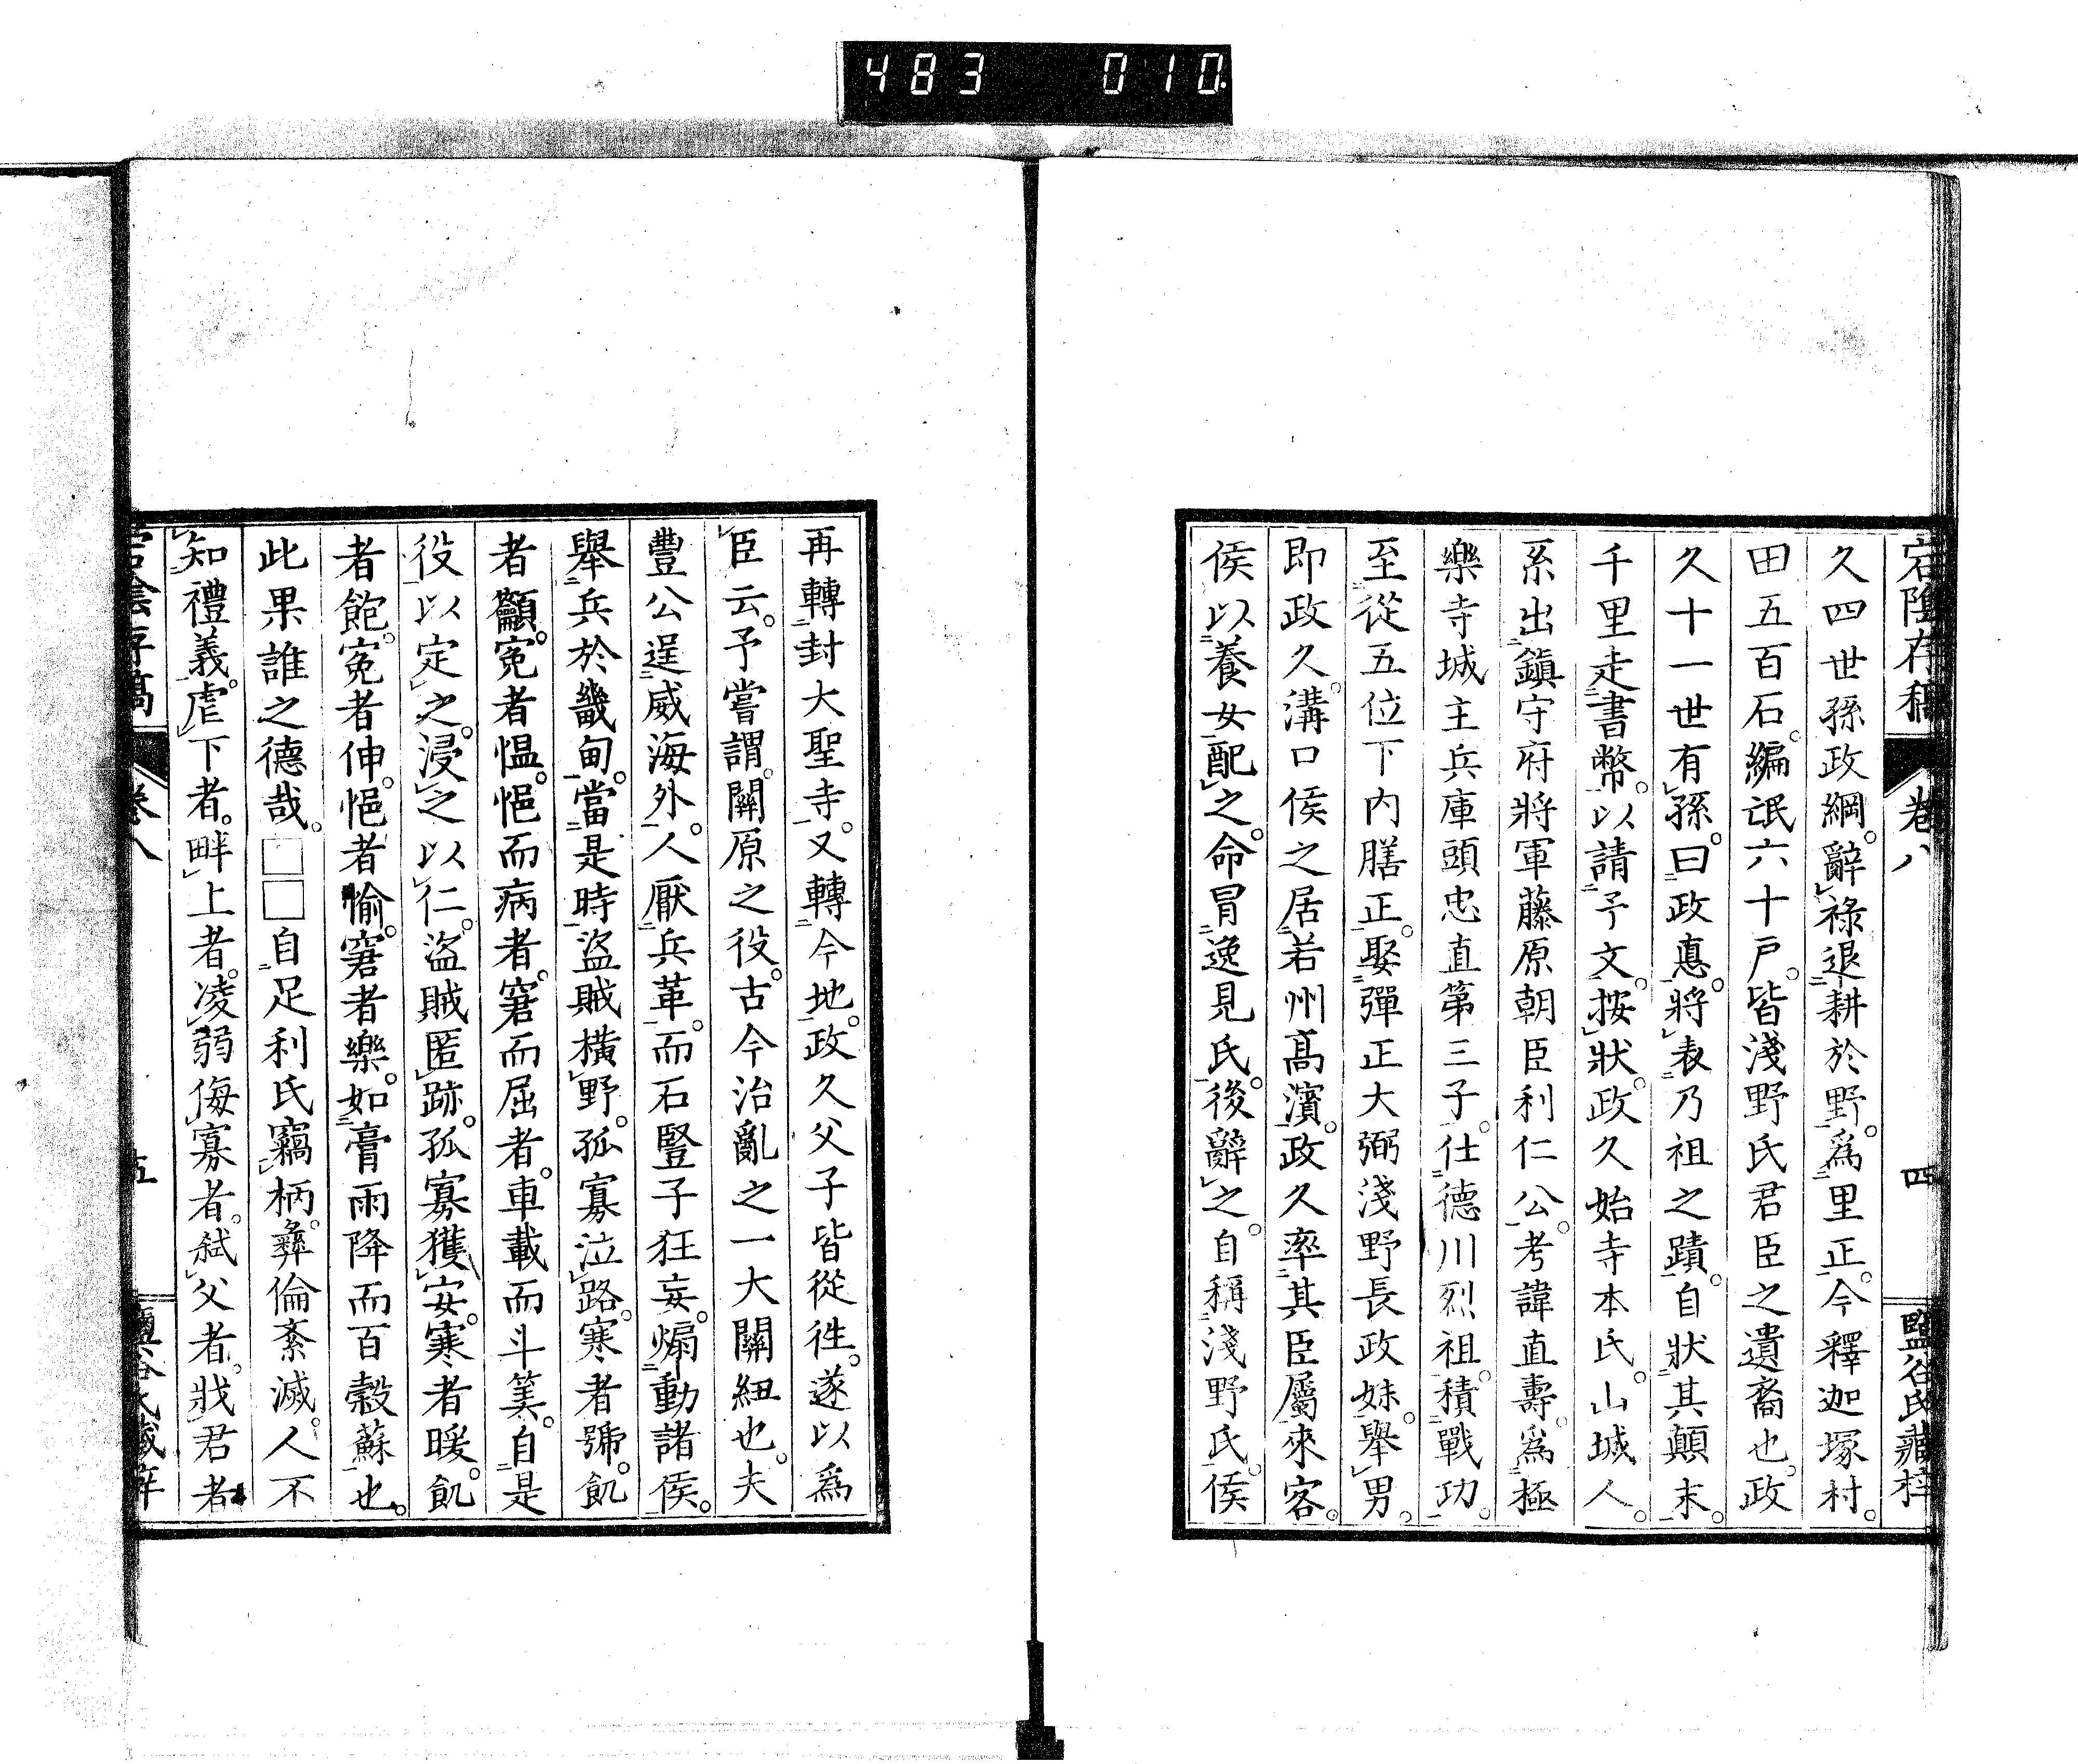 483 010
宕陰存稿 卷八 四 鹽谷氏藏梓
久四世孫政綱。辭祿退耕於野。爲里正。今釋迦塚村。
田五百石。編氓六十戶。皆淺野氏君臣之遺裔也。政
久十一世有孫。曰政惪。將表乃祖之蹟。自狀其顛末。
千里走書幣。以請予文。按狀。政久始寺本氏。山城人。
系出鎭守府將軍藤原朝臣利仁公。考諱直壽。爲極
樂寺城主兵庫頭忠直第三子。仕德川烈祖。積戰功。
至從五位下內膳正。娶彈正大弼淺野長政妹。舉男。
即政久。溝口侯之居若州高濱。政久率其臣屬來客。
侯以養女配之。命冒逸見氏。後辭之。自稱淺野氏。侯
再轉封大聖寺。又轉今地。政久父子皆從徃。遂以爲
臣云。予嘗謂。關原之役。古今治亂之一大關紐也。夫
豐公逞威海外。人厭兵革。而石豎子狂妄。煽動諸侯。
舉兵於畿甸。當是時盜賊橫野。孤寡泣路。寒者號。飢
者顲。冤者慍。悒而病者。窘而屈者。車載而斗筭。自是
役以定之。浸之以仁。盜賊匿跡。孤寡獲安。寒者暖。飢
者飽。冤者伸。悒者愉。窘者樂。如膏雨降而百穀蘇也。
此果誰之德哉。□□自足利氏竊柄。彝倫紊滅。人不
知禮義。虐下者。畔上者。凌弱侮寡者。弑父者。戕君者
宕陰存稿 卷八 五 鹽谷氏藏梓